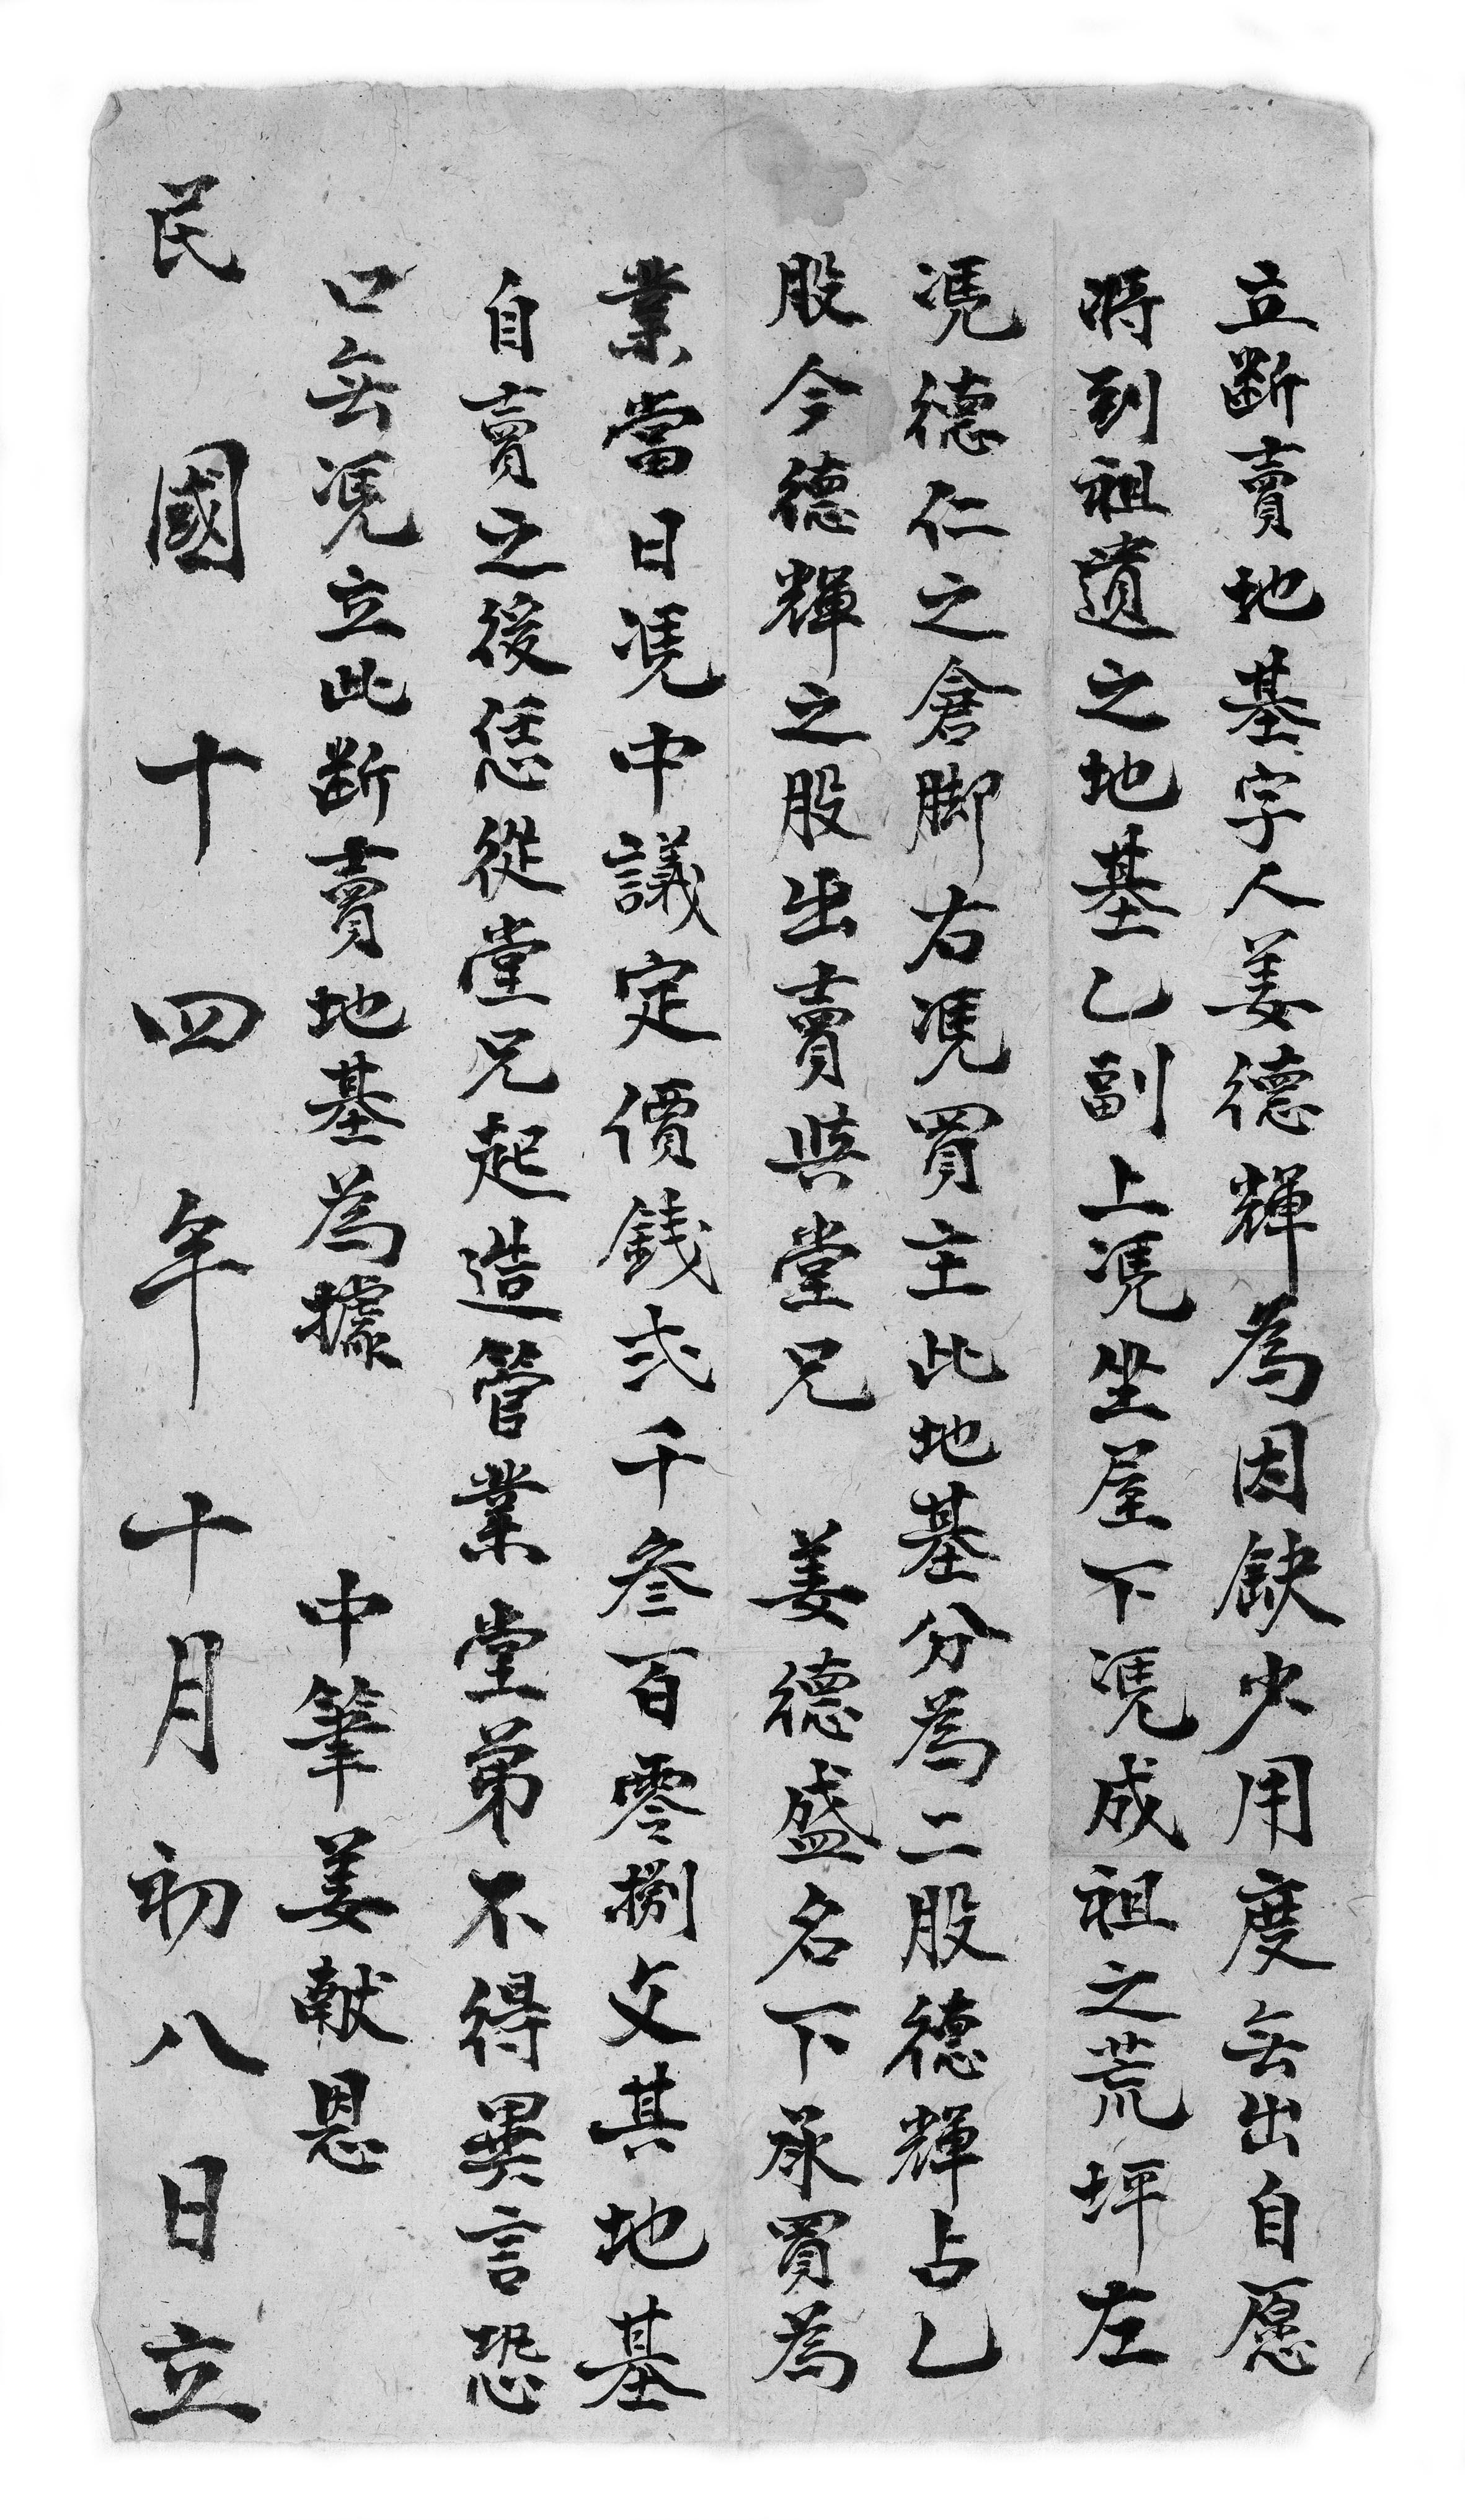 立斷賣地基字人姜德輝為因缺少用度無出自愿
將到祖遺之地基乙副上凴坐屋下凴成祖之荒坪左
凴德仁之倉脚右凴買主此地基分為二股德輝占乙
股今德輝之股出賣與堂兄 姜德盛名下承買為
業當日凴中議定價錢弍千叁百零捌文其地基
自賣之後恁從堂兄起造管業堂弟不得異言恐
口無凴立此斷賣地基為據 中筆姜献恩
民國十四年十月初八日立